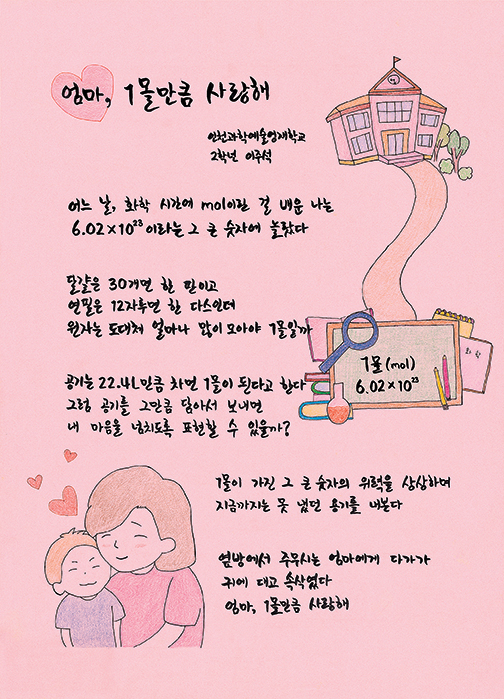 엄마, 1몰만큼 사랑해
인천과학예술영재학교
2학년 이주석
어느 날, 화학 시간에 mol이란 걸 배운 나는
6.02×10²³이라는 그 큰 숫자에 놀랐다
달걀은 30개면 한 판이고
연필은 12자루면 한 다스인데
원자는 도대체 얼마나 많이 모아야 1몰일까
공기는 22.4L만큼 차면 1몰이 된다고 한다
그럼 공기를 그만큼 담아서 보내면
내 마음을 넘치도록 표현할 수 있을까?
1몰(mol)
6.02×10²³
화학
1몰이 가진 그 큰 숫자의 위력을 상상하며
지금까지는 못 냈던 용기를 내본다
옆방에서 주무시는 엄마에게 다가가
귀에 대고 속삭였다
엄마, 1몰만큼 사랑해